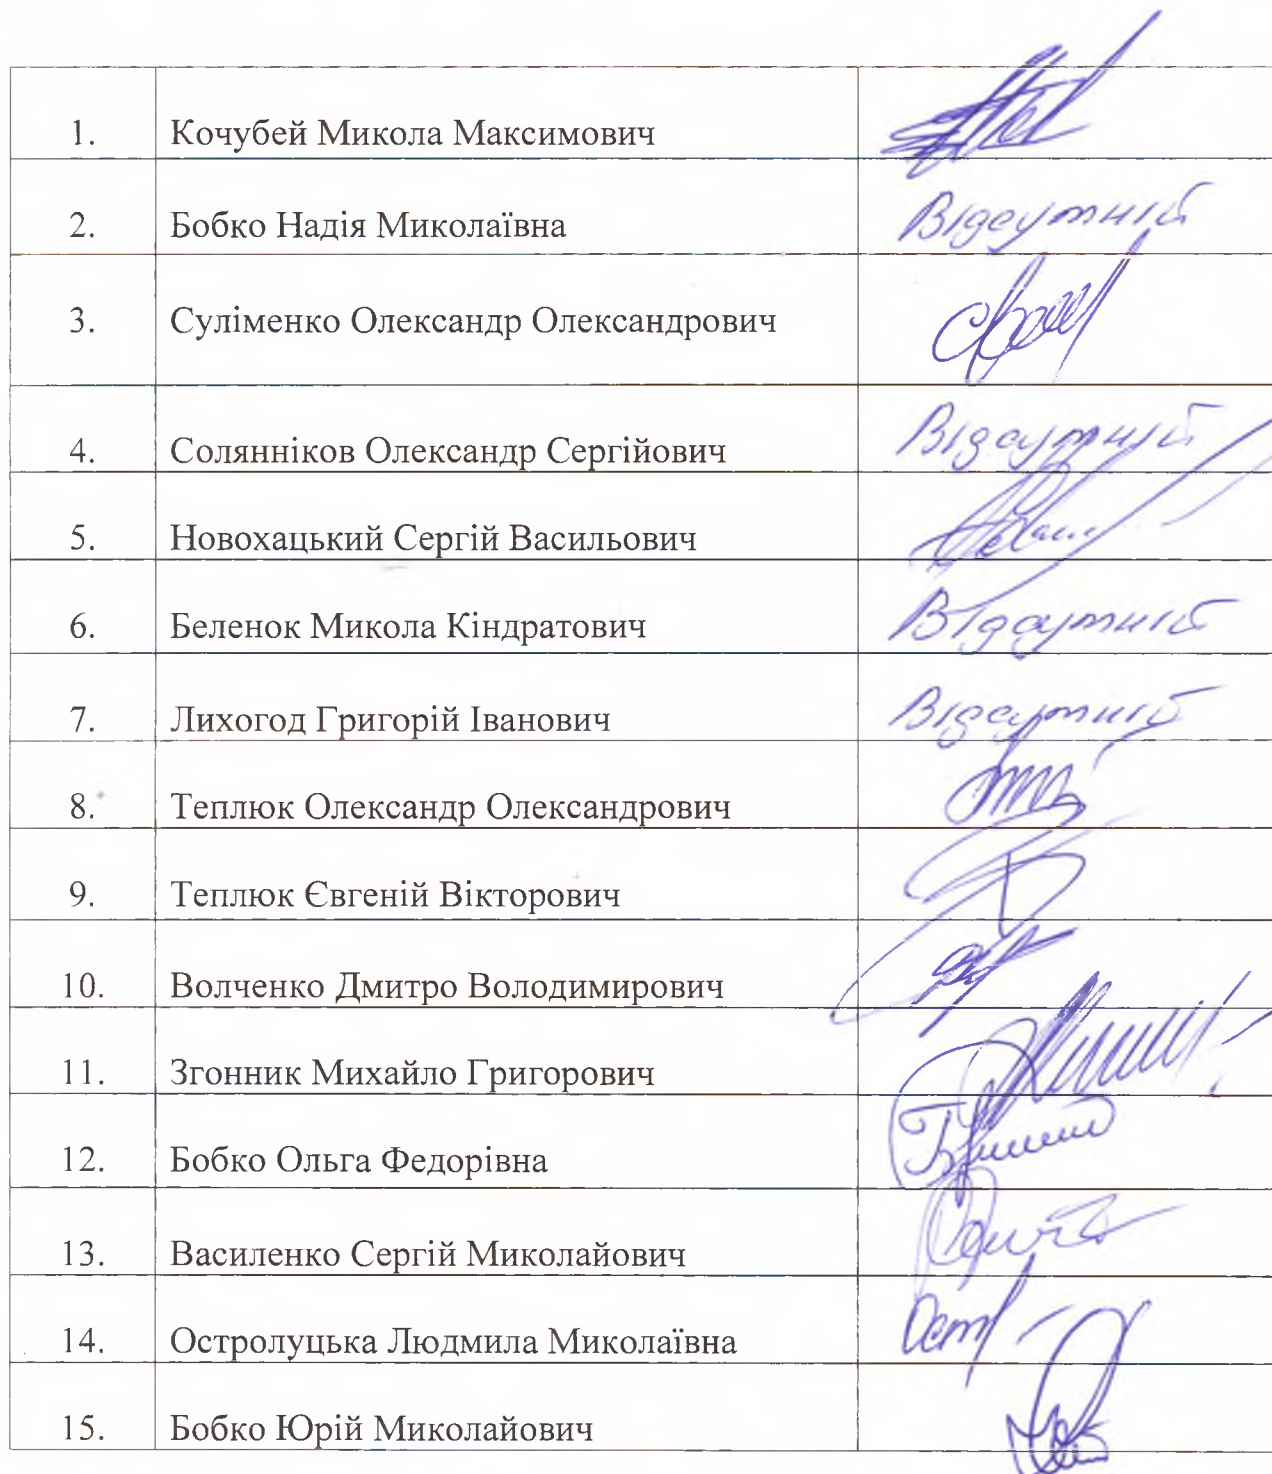 1. Кочубей Микола Максимович
2. Бобко Надія Миколаївна Відсутній
3. Суліменко Олександр Олександрович
4. Солянніков Олександр Сергійович Відсутній
5. Новохацький Сергій Васильович
6. Беленок Микола Кіндратович Відсутній
7. Лихогод Григорій Іванович Відсутній
8. Теплюк Олександр Олександрович
9. Теплюк Євгеній Вікторович
10. Волченко Дмитро Володимирович
11. Згонник Михайло Григорович
12. Бобко Ольга Федорівна
13. Василенко Сергій Миколайович
14. Остролуцька Людмила Миколаївна
15. Бобко Юрій Миколайович